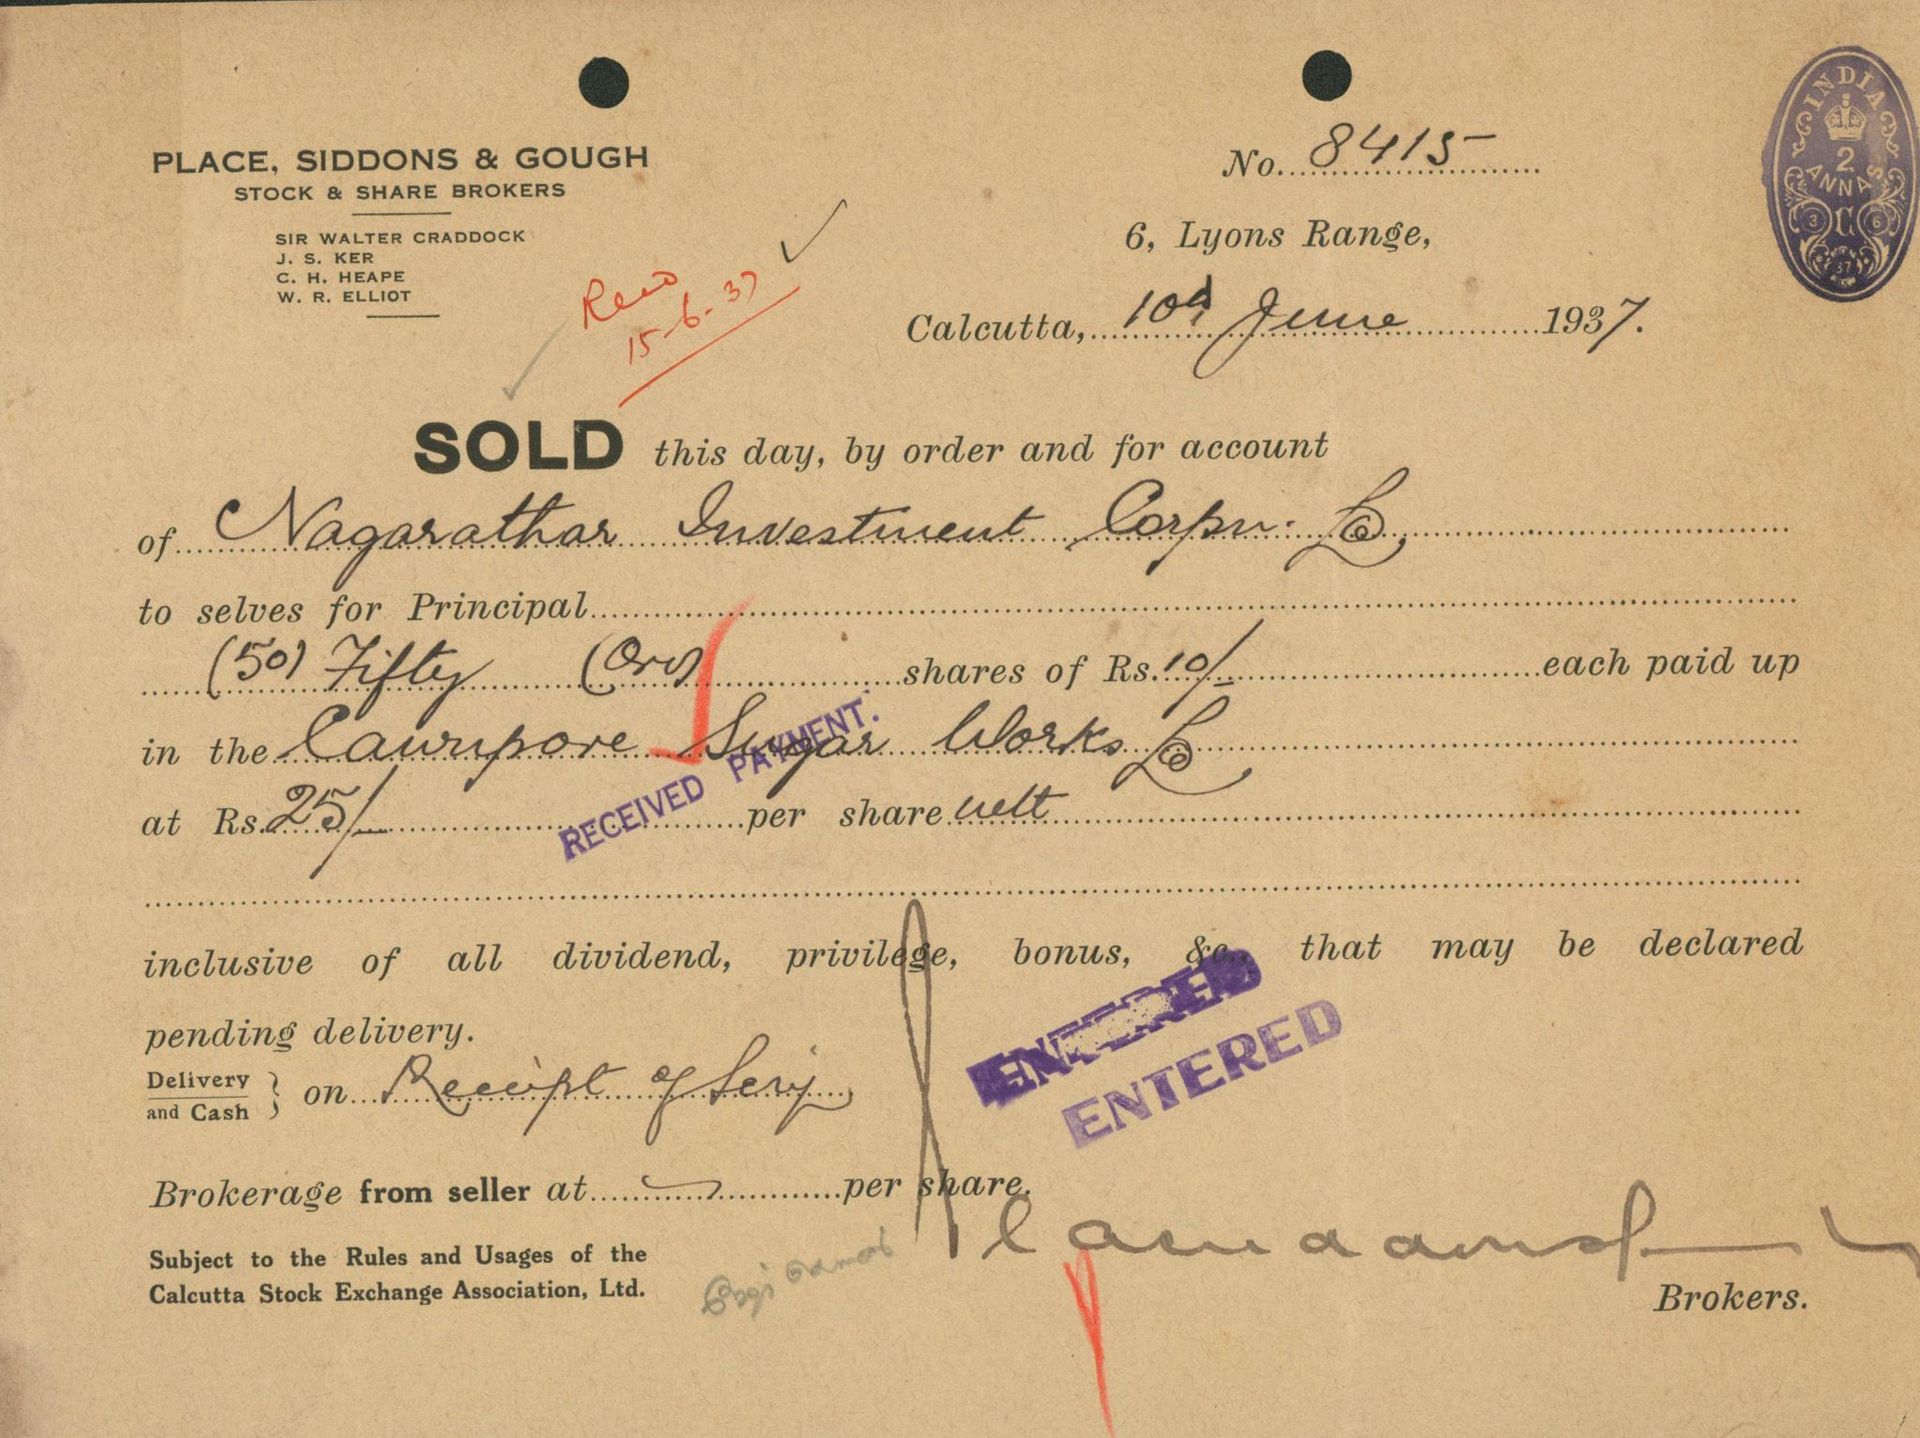 PLACE, SIDDONS & GOUGH
STOCK & SHARE BROKERS
SIR WALTER CRADDOCK
J. S. KER
C. H. HEAPE
W. R. ELLIOT
No. 8415
6, Lyons Range,
Calcutta, 10th June 1937.
INDIA
2
ANNAS
C
3 6
37
15-6-37
SOLD this day, by order and for account
of Nagarathar Investment Corpn. Ld.
to selves for Principal
(50) Fifty (Ord) shares of Rs. 10/- each paid up
in the Cawnpore Sugar Works Ld
at Rs. 25/- per share nett
RECEIVED PAYMENT.
inclusive of all dividend, privilege, bonus, &c., that may be declared
pending delivery.
ENTERED
ENTERED
Delivery and Cash } on Receipt of
Brokerage from seller at per share.
Subject to the Rules and Usages of the
Calcutta Stock Exchange Association, Ltd.
Brokers.